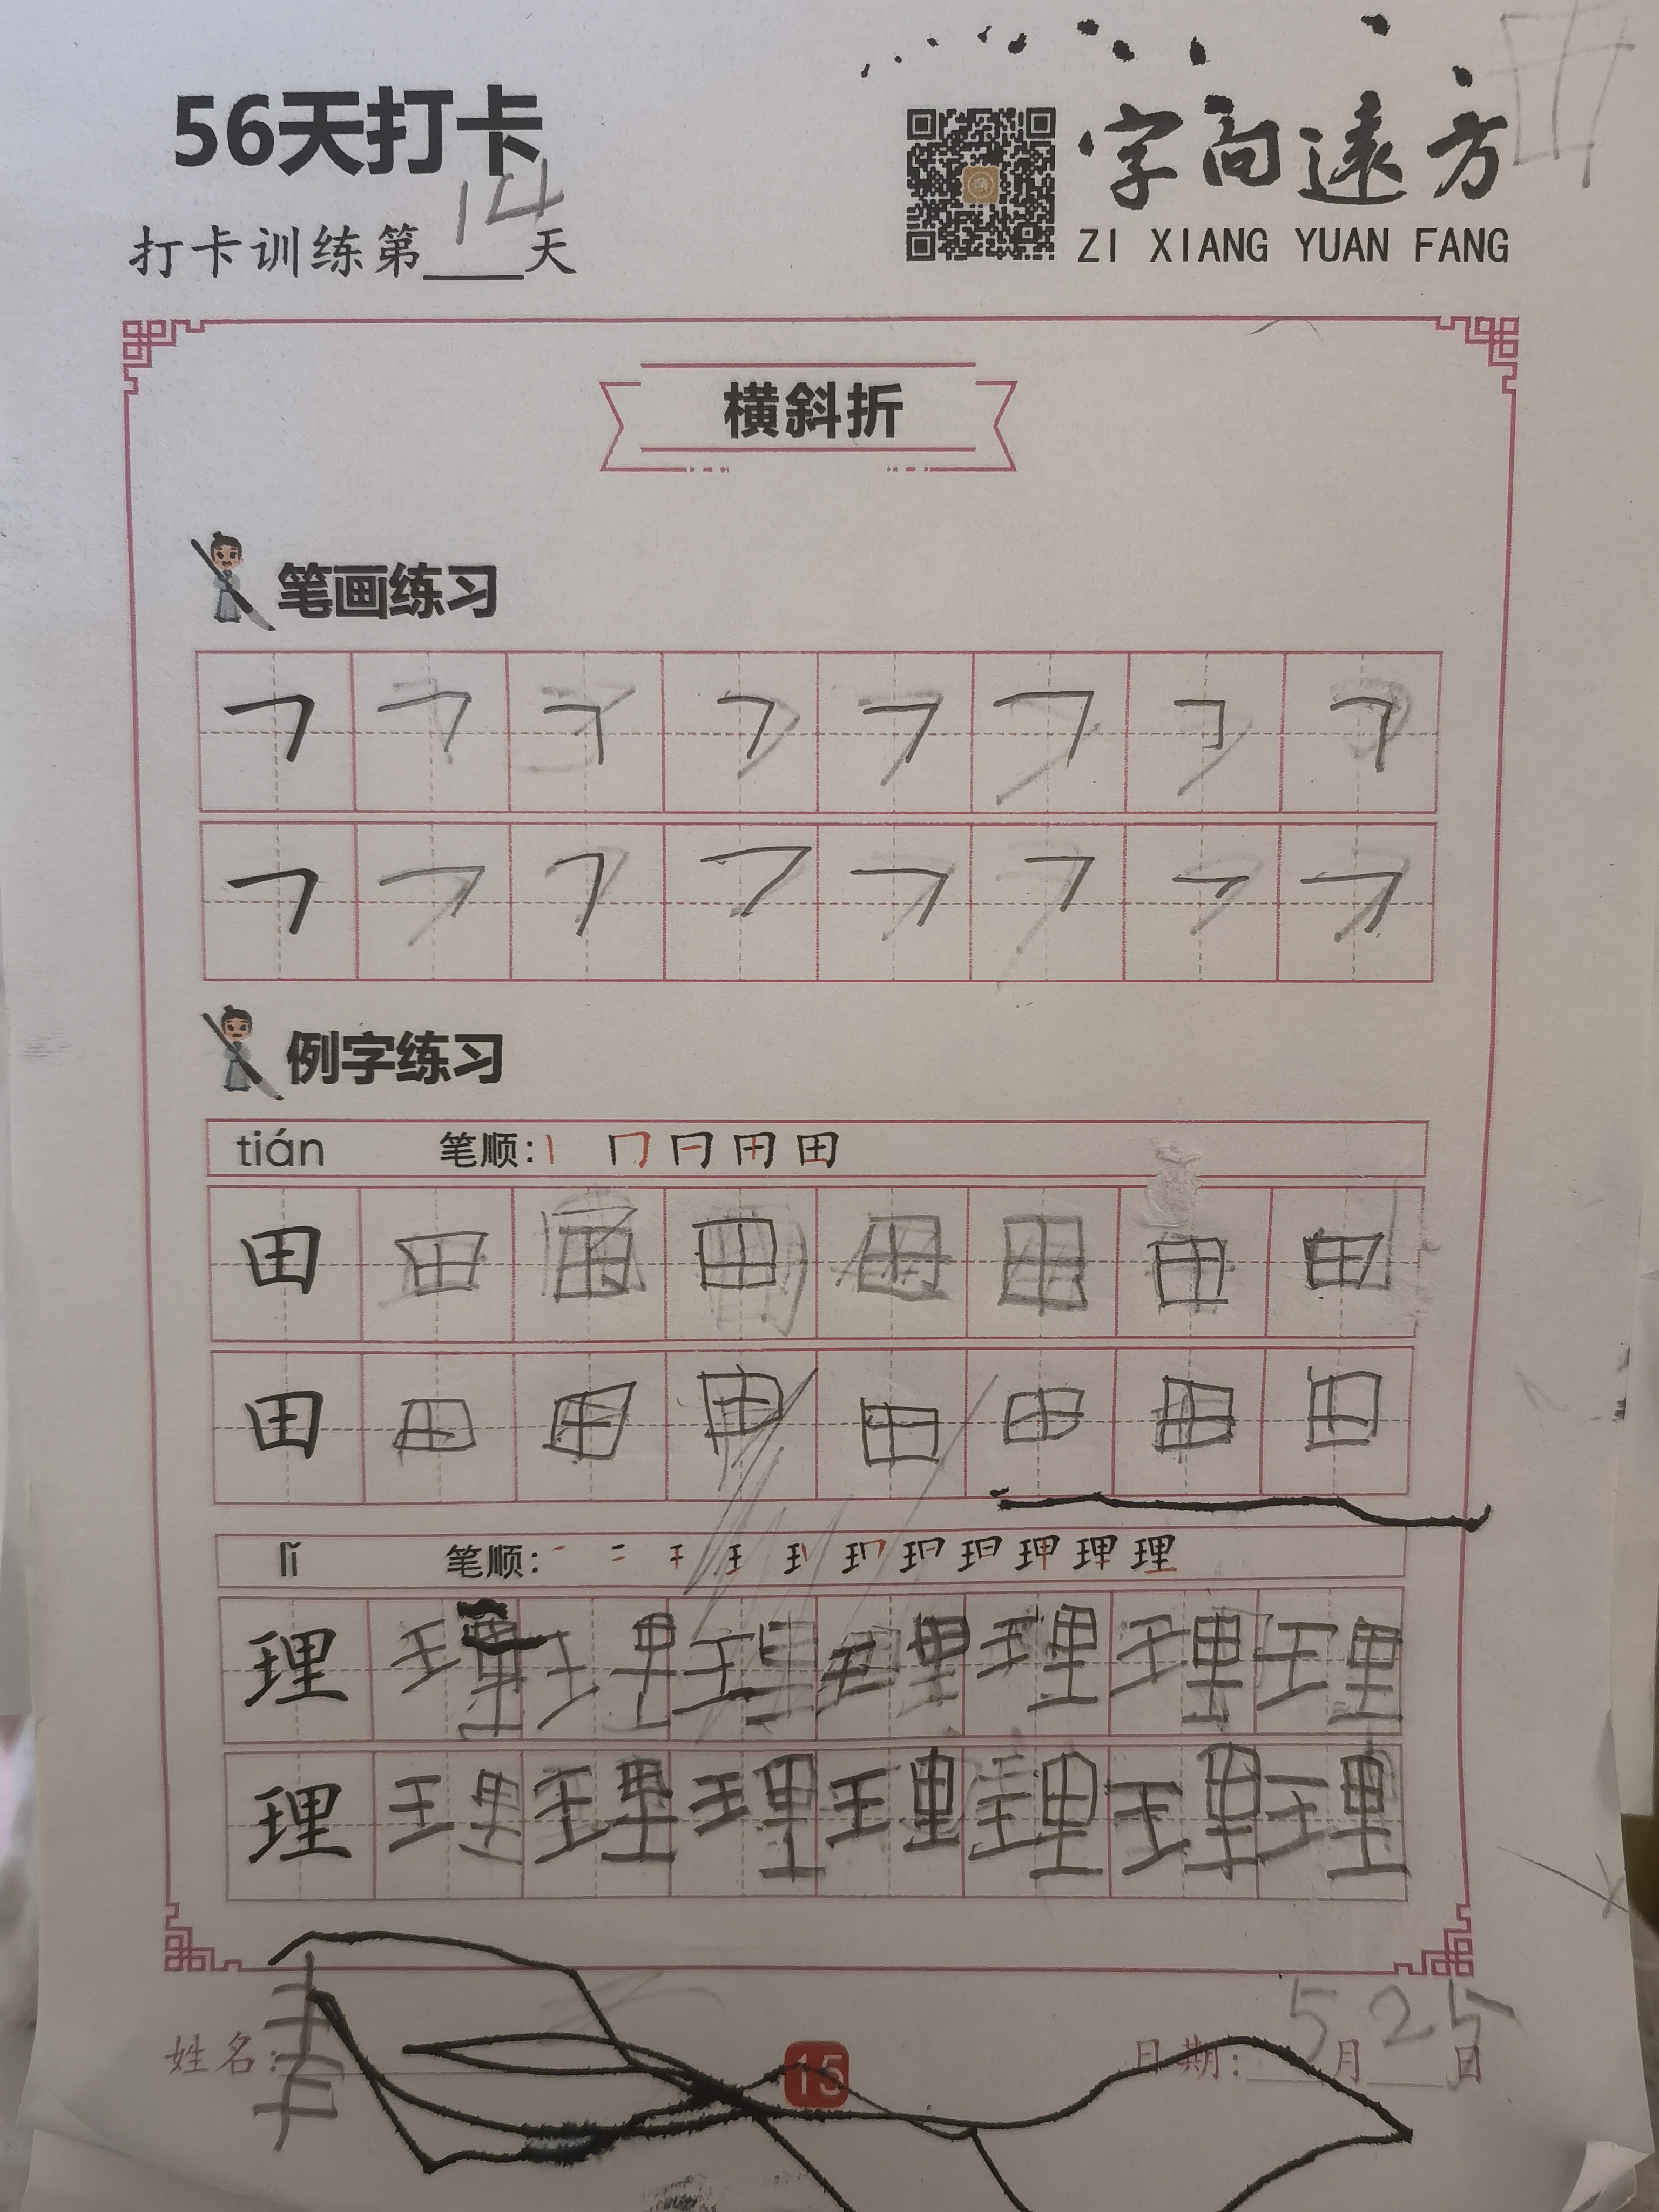 56天打卡
打卡训练第14天
字向遠方
ZI XIANG YUAN FANG
横斜折
笔画练习
例字练习
tián 笔顺:丨 冂 冃 甲 田
田 田 田 田 田 田 田 田
田 田 田 田 田 田 田 田
lǐ 笔顺:
理 理 理 理 理 理 理 理
理 理 理 理 理 理 理 理
姓名:
15
日期: 5月25日